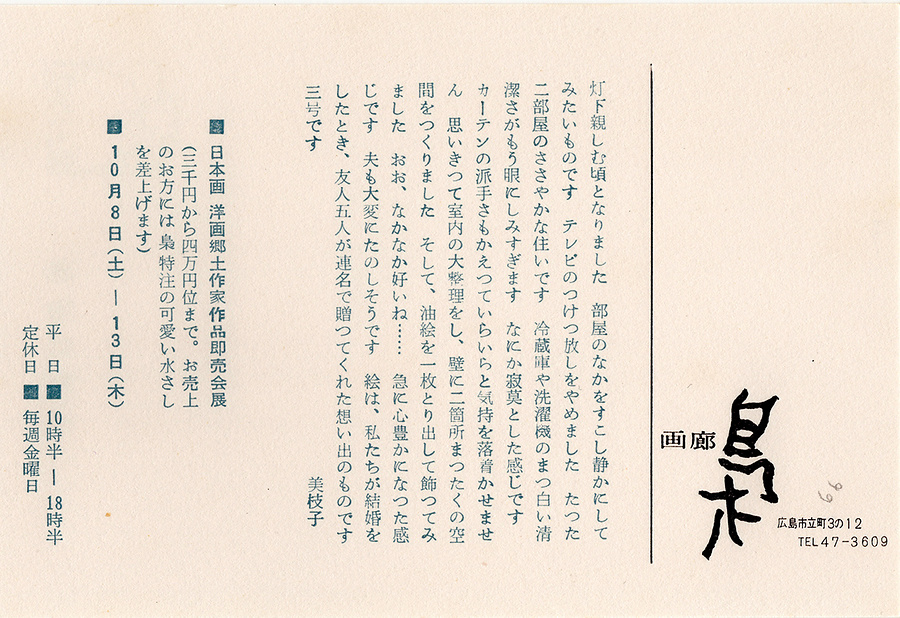 画廊
梟
広島市立町3の12
TEL47-3609
66
灯下親しむ頃となりました　部屋のなかをすこし静かにして
みたいものです　テレビのつけつ放しをやめました　たつた
二部屋のささやかな住いです　冷蔵庫や洗濯機のまつ白い清
潔さがもう眼にしみすぎます　なにか寂莫とした感じです
カーテンの派手さもかえつていらいらと気持を落着かせませ
ん　思いきつて室内の大整理をし、壁に二箇所まつたくの空
間をつくりました　そして、油絵を一枚とり出して飾つてみ
ました　おお、なかなか好いね……　急に心豊かになつた感
じです　夫も大変にたのしそうです　絵は、私たちが結婚を
したとき、友人五人が連名で贈つてくれた想い出のものです
三号です　美枝子
■ 日本画 洋画郷土作家作品即売会展
(三千円から四万円位まで。お売上
のお方には梟特注の可愛い水さし
を差上げます)
■ 10月8日(土)―13日(木)
平　日 ■ 10時半―18時半
定休日 ■ 毎週金曜日